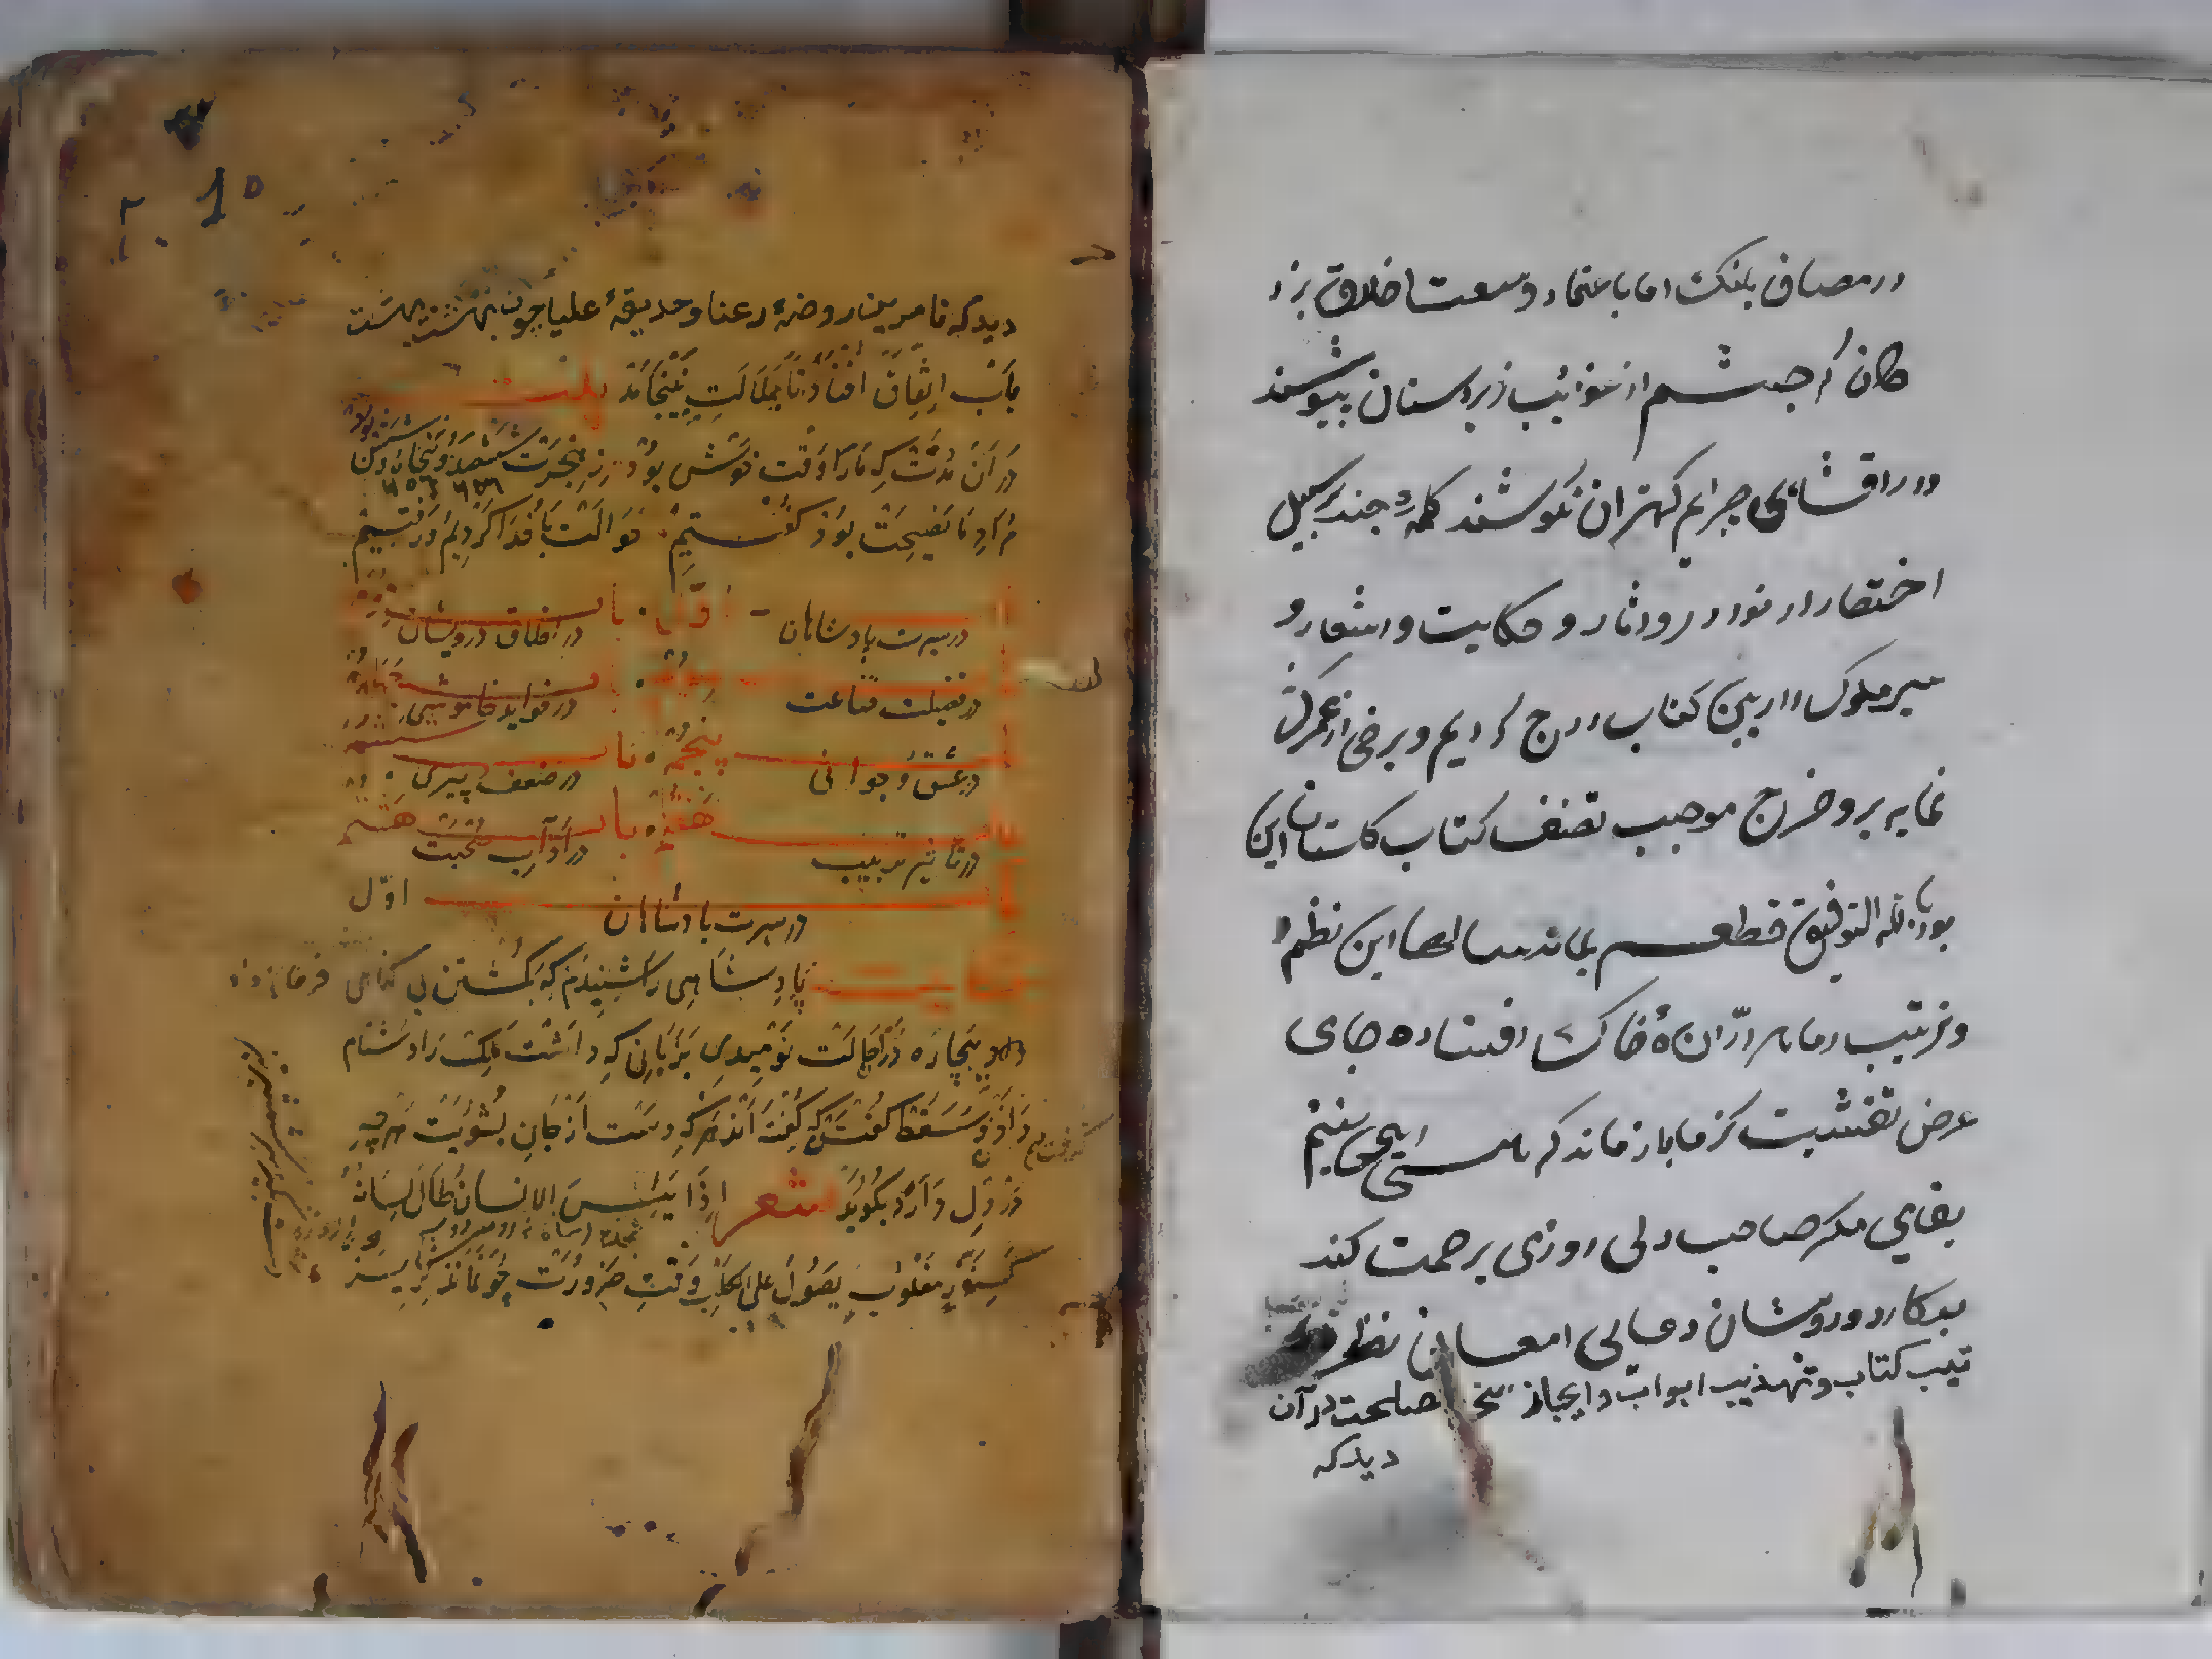 در مصاف پلنک اما باعتماد وسعت اخلاق بزر
کان کر جشم از عوائب زیردستان بپوشند
ودر افشای جرایم کهتران نکوشند کلمهٔ جند بر سبیل
اختصار از نوادر و اثار و حکایت و اشعار و
سیر ملوک در این کتاب درج کردیم و برخی از عمر کران
نمایه برو خرج موجب تصنف کتاب کلستان این
بود بالله التوفیق قطعه بماند سالها این نظم
و ترتیب زما هر ذرّان ۀ خاک افتاده جای
غرض نقشیست کز ما باز ماند که هستی را نمی بینم
بقای مکر صاحب دلی روزی برحمت کند
بر کار درویشان دعایی امعان نظر در
تیب کتاب و تهذیب ابواب و ایجاز سخن مصلحت در آن
دیدکه
دیدکه تا مرین روضۀ رعنا و حدیقۀ علیا چون بهشت بهشت
باب اتفاق افتاد تا بملالت نینجامد
در آن مدت که ما را وقت خوش بود ز هجرت ششصد و پنجاه و شش بود
۶۵۶ ۶۵۶
مراد ما نصیحت بود کفتیم حوالت با خدا کردیم و رفتیم
اول با
در سیرت پادشاهان در اخلاق درویشان
در فضیلت قناعت در فواید خاموشی
پنجم با
در عشق و جوانی در ضعف پیری
هفتم با هشتم
در تاثیر تربیت در آداب صحبت
اول
در سیرت پادشاهان
حکایت پادشاهی را شنیدم که بکشتن بی کناهی فرمان داد
بیچاره در حالت نومیدی بزبانی که داشت ملک را دشنام
دادن و سقط کفتن که کفته اند هر که دست از جان بشوید هر چه
کرفت
در دل دارد بکوید شعر اذا یئس الانسان طال لسانه
کسنور مغلوب یصول علی الکلب وقت ضرورت چو نماند کریز
دست بکیرد سر شمشیر تیز